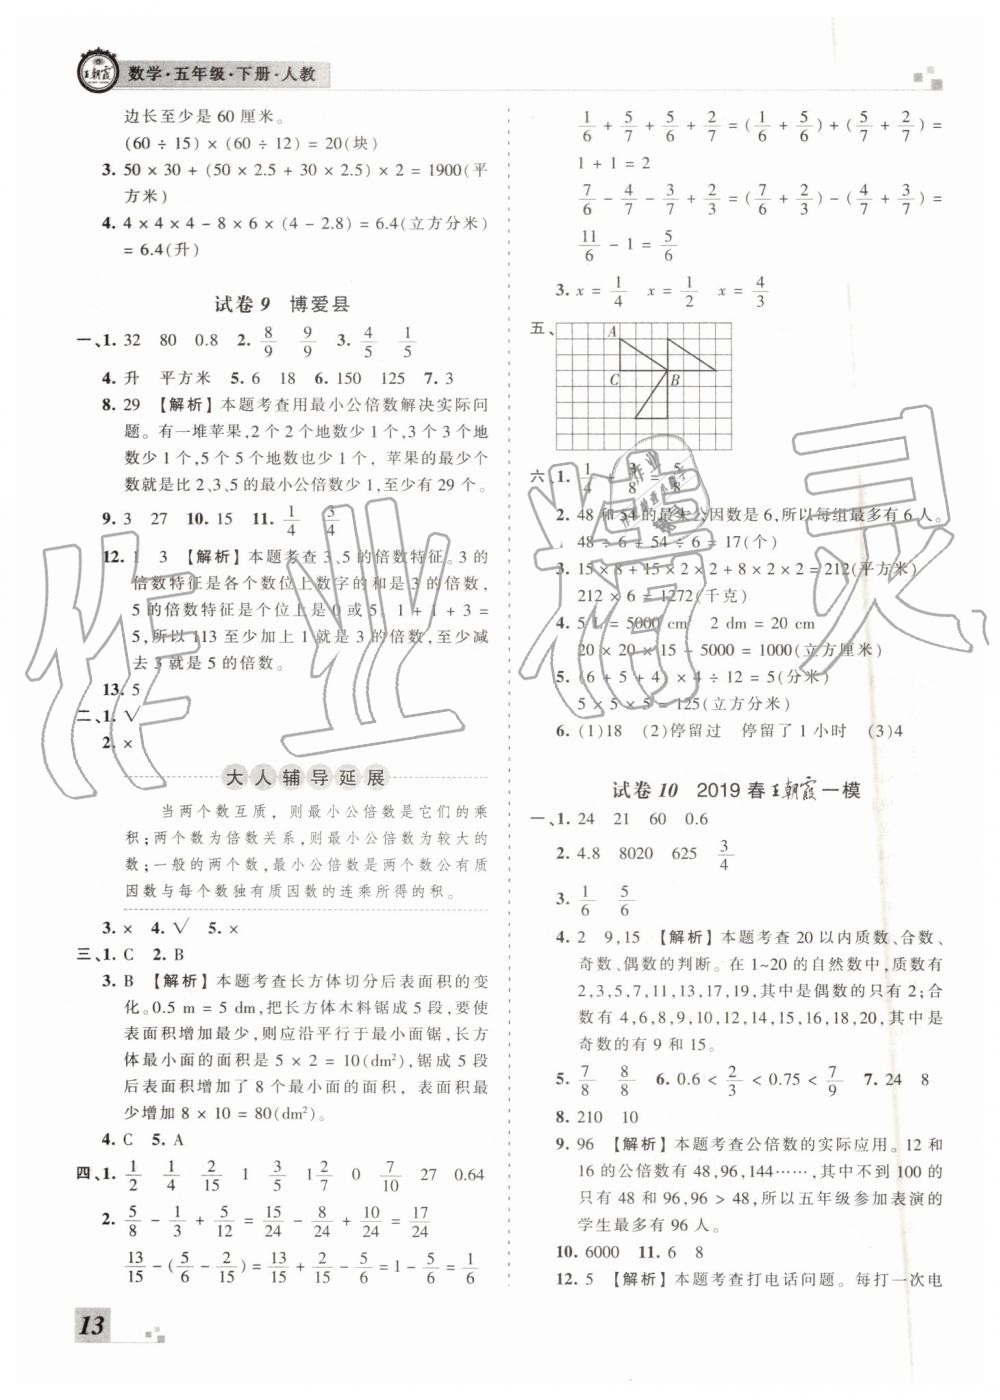 王朝霞 数学·五年级·下册·人教
边长至少是 60 厘米。
(60 ÷ 15) × (60 ÷ 12) = 20(块)
3. 50 × 30 + (50 × 2.5 + 30 × 2.5) × 2 = 1900(平
方米)
4. 4 × 4 × 4 - 8 × 6 × (4 - 2.8) = 6.4(立方分米)
= 6.4(升)
试卷 9 博爱县
一、1. 32 80 0.8 2. 8/9 9/9 3. 4/5 1/5
4. 升 平方米 5. 6 18 6. 150 125 7. 3
8. 29 【解析】本题考查用最小公倍数解决实际问
题。有一堆苹果,2 个 2 个地数少 1 个,3 个 3 个地
数少 1 个,5 个 5 个地数也少 1 个, 苹果的最少个
数就是比 2、3、5 的最小公倍数少 1,至少有 29 个。
9. 3 27 10. 15 11. 1/4 3/4
12. 1 3 【解析】本题考查 3、5 的倍数特征。3 的
倍数特征是各个数位上数字的和是 3 的倍数,
5 的倍数特征是个位上是 0 或 5。1 + 1 + 3 =
5,所以 113 至少加上 1 就是 3 的倍数,至少减
去 3 就是 5 的倍数。
13. 5
二、1. √
2. ×
大人辅导延展
当两个数互质, 则最小公倍数是它们的乘
积;两个数为倍数关系,则最小公倍数为较大的
数;一般的两个数,最小公倍数是两个数公有质
因数与每个数独有质因数的连乘所得的积。
3. × 4. √ 5. ×
三、1. C 2. B
3. B 【解析】本题考查长方体切分后表面积的变
化。0.5 m = 5 dm,把长方体木料锯成 5 段,要使
表面积增加最少,则应沿平行于最小面锯,长方
体最小面的面积是 5 × 2 = 10(dm²),锯成 5 段
后表面积增加了 8 个最小面的面积, 表面积最
少增加 8 × 10 = 80(dm²)。
4. C 5. A
四、1. 1/2 1/4 2/15 1 3/5 1 2/7 0 7/10 27 0.64
2. 5/8 - 1/3 + 5/12 = 15/24 - 8/24 + 10/24 = 17/24
13/15 - (5/6 - 2/15) = 13/15 + 2/15 - 5/6 = 1 - 5/6 = 1/6
1/6 + 5/7 + 5/6 + 2/7 = (1/6 + 5/6) + (5/7 + 2/7) =
1 + 1 = 2
7/6 - 4/7 - 3/7 + 2/3 = (7/6 + 2/3) - (4/7 + 3/7) =
11/6 - 1 = 5/6
3. x = 1/4 x = 1/2 x = 4/3
五、
A
C B
六、1. 1/4 3/8 5/8
2. 48 和 54 的最大公因数是 6,所以每组最多有 6 人。
48 ÷ 6 + 54 ÷ 6 = 17(个)
3. 15 × 8 + 15 × 2 × 2 + 8 × 2 × 2 = 212(平方米)
212 × 6 = 1272(千克)
4. 5 L = 5000 cm³ 2 dm = 20 cm
20 × 20 × 15 - 5000 = 1000(立方厘米)
5. (6 + 5 + 4) × 4 ÷ 12 = 5(分米)
5 × 5 × 5 = 125(立方分米)
6. (1)18 (2)停留过 停留了 1 小时 (3)4
试卷 10 2019 春王朝霞一模
一、1. 24 21 60 0.6
2. 4.8 8020 625 3/4
3. 1/6 5/6
4. 2 9,15 【解析】本题考查 20 以内质数、合数、
奇数、偶数的判断。在 1~20 的自然数中,质数有
2,3,5,7,11,13,17,19,其中是偶数的只有 2;合
数有 4,6,8,9,10,12,14,15,16,18,20,其中是
奇数的有 9 和 15。
5. 7/8 8/8 6. 0.6 < 2/3 < 0.75 < 7/9 7. 24 8
8. 210 10
9. 96 【解析】本题考查公倍数的实际应用。12 和
16 的公倍数有 48,96,144……,其中不到 100 的
只有 48 和 96,96 > 48,所以五年级参加表演的
学生最多有 96 人。
10. 6000 11. 6 8
12. 5 【解析】本题考查打电话问题。每打一次电
13
作业精灵